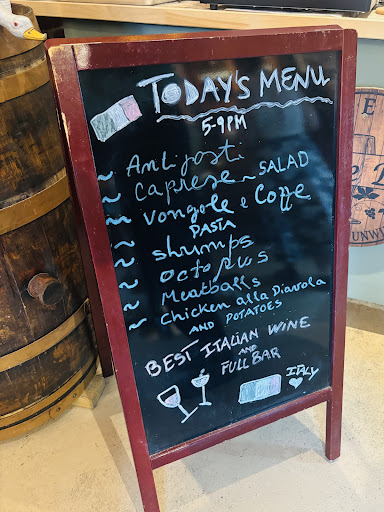 TODAY'S MENU
5-9PM
~ Antiposti
~ Caprese ~ SALAD
~ Vongole e Coffe
PASTA
~ shrumps
~ octopus
~ Meatballs
~ Chicken alla Diavola
AND POTATOES
BEST ITALIAN WINE
AND
FULL BAR
ITALY